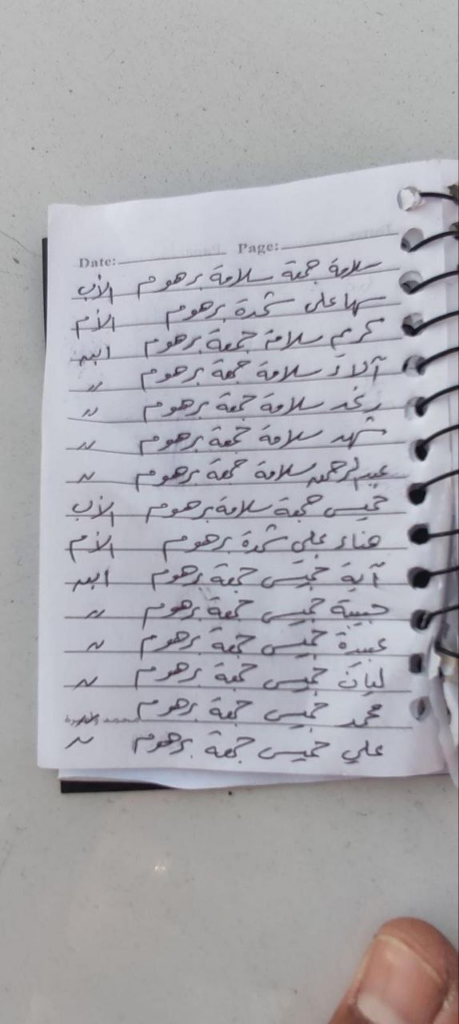 Date: Page:
سلامة جمعة سلامة برهوم الأب
سها على شحدة برهوم الأم
كرم سلامة جمعة برهوم ابن
آلاء سلامة جمعة برهوم 〃
رغد سلامة جمعة برهوم 〃
شهد سلامة جمعة برهوم 〃
عبدالرحمن سلامة جمعة برهوم 〃
خميس جمعة سلامة برهوم الأب
هناء على شحدة برهوم الأم
آية خميس جمعة برهوم ابن
حبيبة خميس جمعة برهوم 〃
عبيدة خميس جمعة برهوم 〃
ليان خميس جمعة برهوم 〃
محمد خميس جمعة برهوم
علي خميس جمعة برهوم 〃